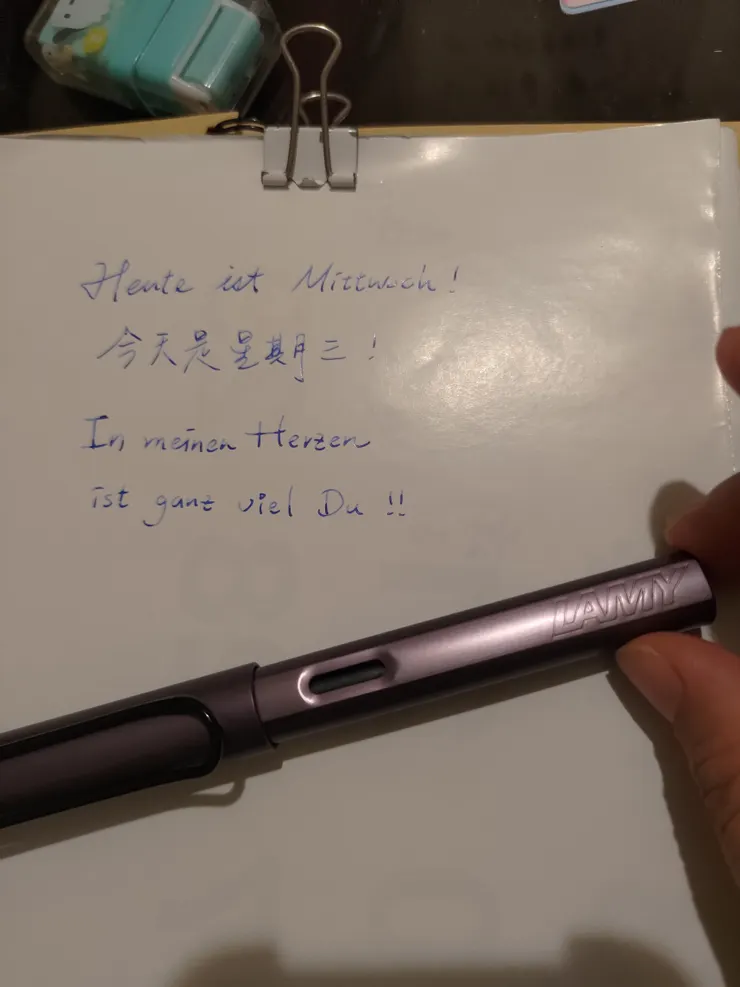 Heute ist Mittwoch!
今天是星期三!
In meinen Herzen
ist ganz viel Du !!
LAMY